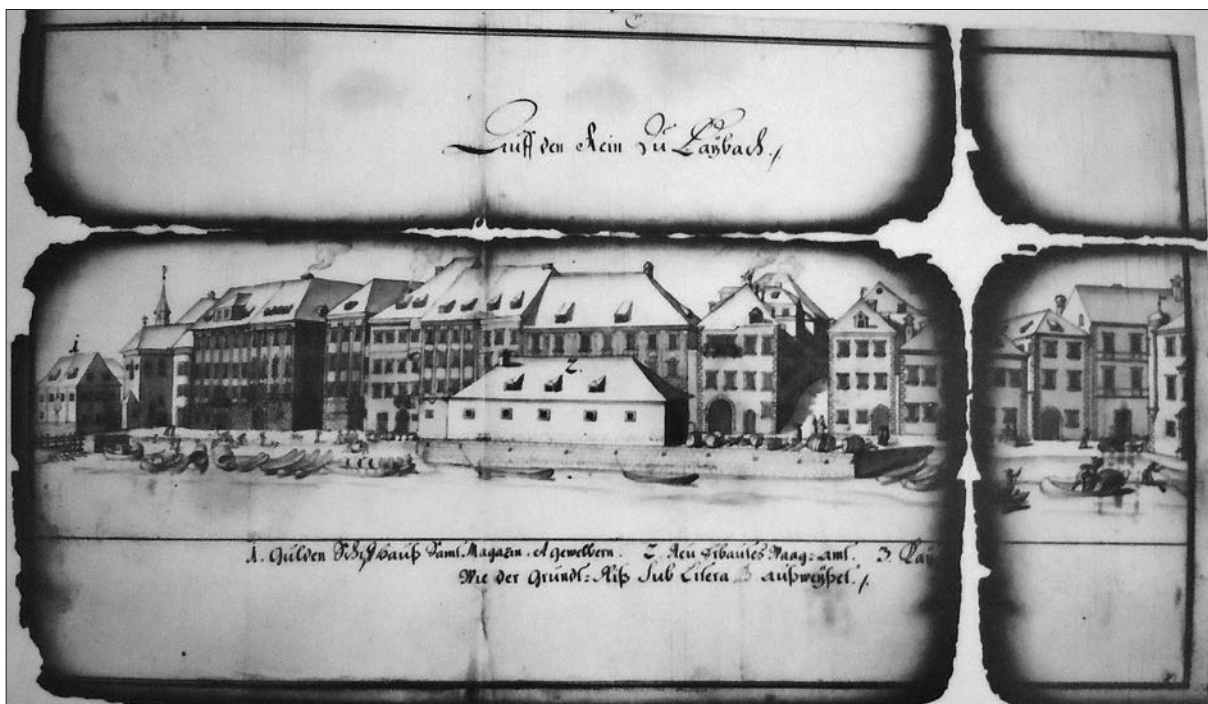 Auff den Rein Zu Laybach./
2.
1. Gulden Schiffhauß Samt Magazin. et gewelbern. 2. Neu Erbautes Waag=amt. 3. Lay
Wie der Grundt=Riß Sub Litera B außweyßet./